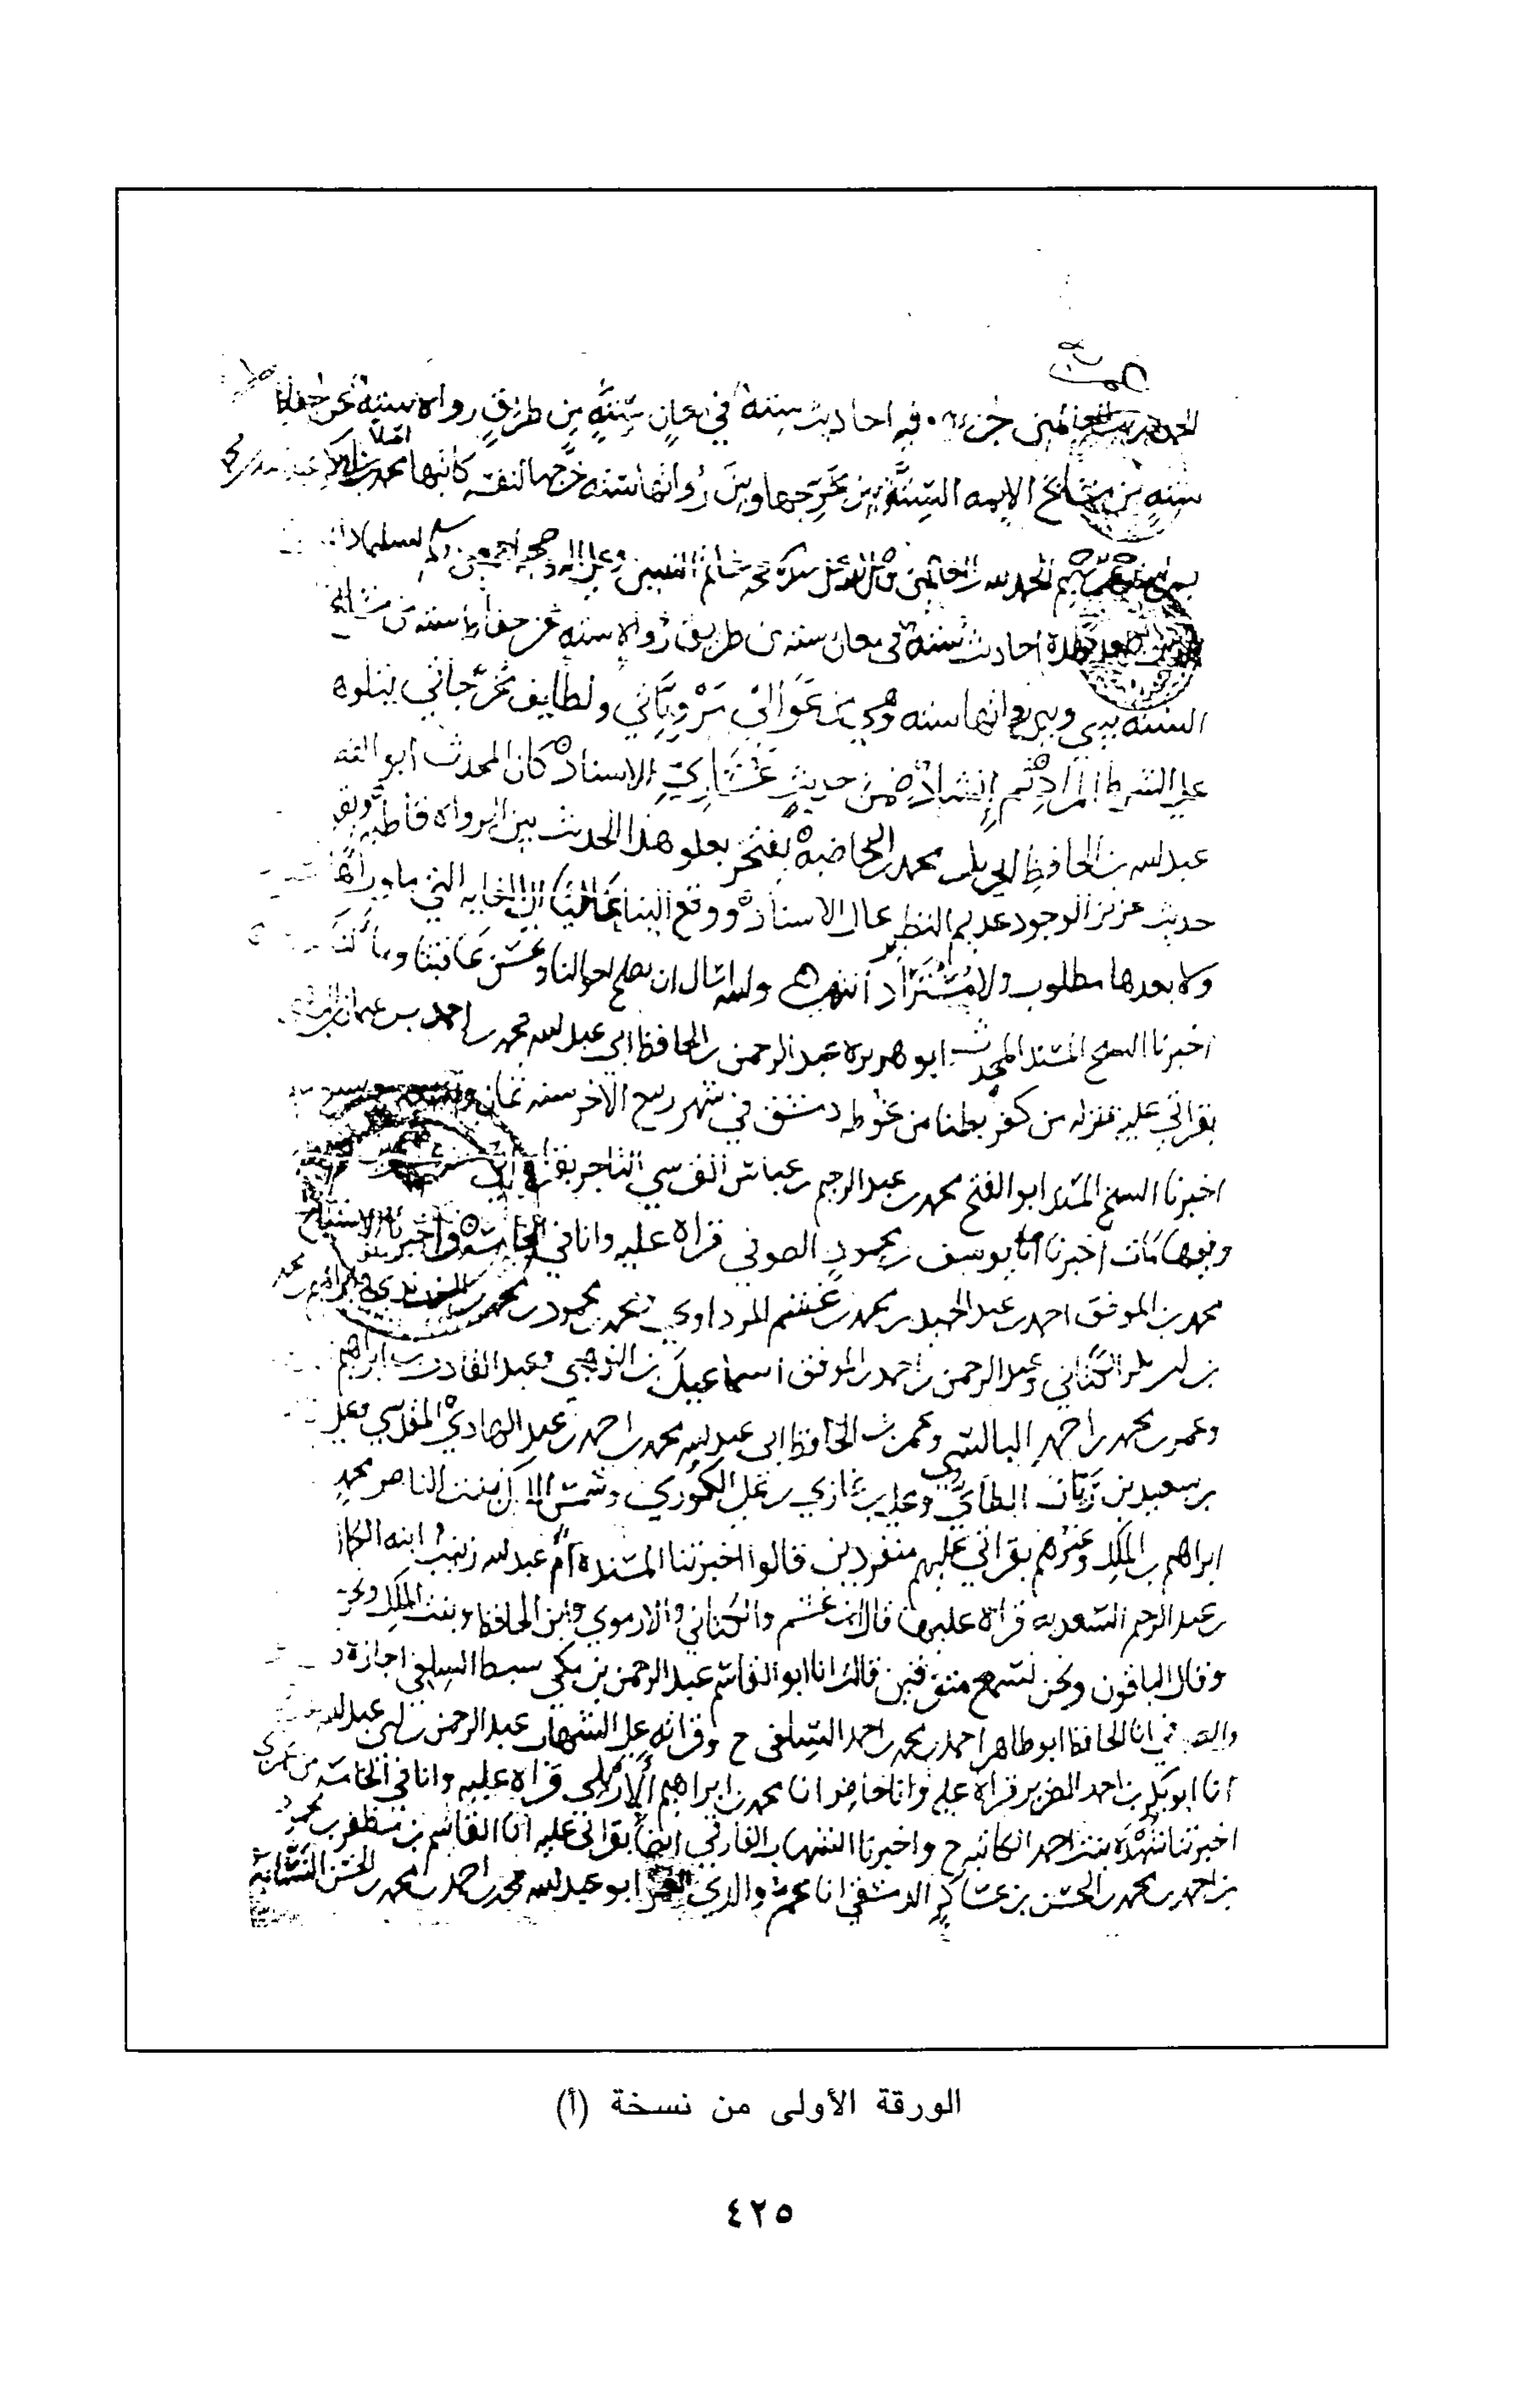 الحمد لله رب العالمين جزء فيه احاديث ستة في معان ستة من طريق رواة ستة عن حفاظ
ستة من مشايخ الايمه الستة بين مخرجها وبين رواتها ستة خرجها لنفسه كاتبها محمد بن
بسم الله الرحمن الرحيم الحمد لله رب العالمين محمد خاتم النبيين وعلى اله وصحبه اجمعين
هذه احاديث ستة في معان ستة من طريق رواة ستة عن حفاظ ستة من مشايخ
الستة بيني وبين رواتها ستة وهي من عوالي مروياتي ولطايف تخريجاتي يتلوه
على الشرط المراد ثم انشاد ضمن حديث عشاري الاسناد كان المحدث ابو القسم
عبد الله بن الحافظ ابي بكر محمد بن الخاضبة يفتخر بعلو هذا الحديث بين الرواة قاطبة ويقول
حديث عزيز الوجود عديم النظير عال الاسناد ووقع الينا عاليا الى الغاية التي ما وراها
ولا بعدها مطلوب ولا مستزاد انتهى والله اسال ان يصلح احوالنا ويحسن عاقبتنا
اخبرنا الشيخ المسند المحدث ابو هريرة عبد الرحمن بن الحافظ ابي عبد الله محمد بن احمد بن عثمان
بقراتي عليه بمنزله من كفر بطنا من غوطة دمشق في شهر ربيع الاخر سنة ثمان وتسعين
اخبرنا الشيخ المسند ابو الفتح محمد بن عبد الرحيم بن عباس القرسي التاجر بقراة ابي
وفيها مات اخبرنا يوسف بن محمود الصوفي قراة عليه وانا في الخامسة واخبرنا الاشياخ
محمد بن الموفق احمد بن عبد الحميد بن محمد بن غشم المرداوي محمد بن محمود بن محمد بن
الكناني وعبد الرحمن بن احمد بن الموفق اسماعيل بن الذهبي وعبد القادر بن ابراهيم
وعمر بن محمد بن احمد البالسي وعمر بن الحافظ ابي عبد الله محمد بن احمد بن عبد الهادي المقدسي وعلي
بن سعيد بن زيان الطائي وعلي بن غازي بن علي الكوري وشمس الملوك بنت الناصر محمد
ابراهيم بن الملك وغيرهم بقراتي عليهم منفردين قالوا اخبرتنا المسندة ام عبد الله زينب ابنة الكمال
بن عبد الرحيم السعديه قراة عليها قال ابن غشم والكناني والارموي وابن الحافظ وبنت الملك ونحن
وقال الباقون ونحن نسمع متفرقين قالت انا ابو القاسم عبد الرحمن بن مكي سبط السلفي اجازة
انا الحافظ ابو طاهر احمد بن محمد بن احمد السلفي ح وقراته على الشهاب عبد الرحمن بن ابي عبد الله
انا ابو بكر بن احمد الضرير قراة عليه وانا حاضر انا محمد بن ابراهيم الاربلي قراة عليه وانا في الخامسة من عمري
اخبرتنا شهدة بنت احمد الكاتبه ح واخبرنا الشهاب الفارقي ايضا بقراتي عليه انا القاسم بن مظفر بن محمود
بن احمد بن محمد بن الحسن بن عساكر الدمشقي انا عم والدي ابو عبد الله محمد بن احمد بن محمد بن الحسن النسابة
الورقة الأولى من نسخة (أ)
٤٢٥